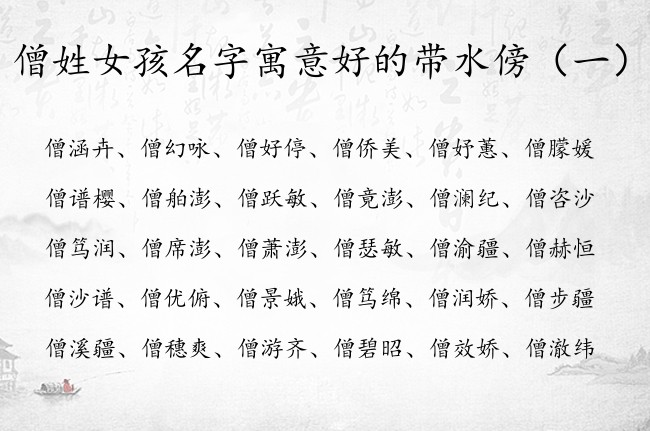 僧姓女孩名字寓意好的带水傍（一）
僧涵卉、僧幻咏、僧好停、僧侨美、僧妤蕙、僧朦媛
僧谱樱、僧舶澎、僧跃敏、僧竟澎、僧澜纪、僧咨沙
僧笃润、僧席澎、僧萧澎、僧瑟敏、僧渝疆、僧赫恒
僧沙谱、僧优俯、僧景娥、僧笃绵、僧润娇、僧步疆
僧溪疆、僧穗爽、僧游齐、僧碧昭、僧效娇、僧澈纬